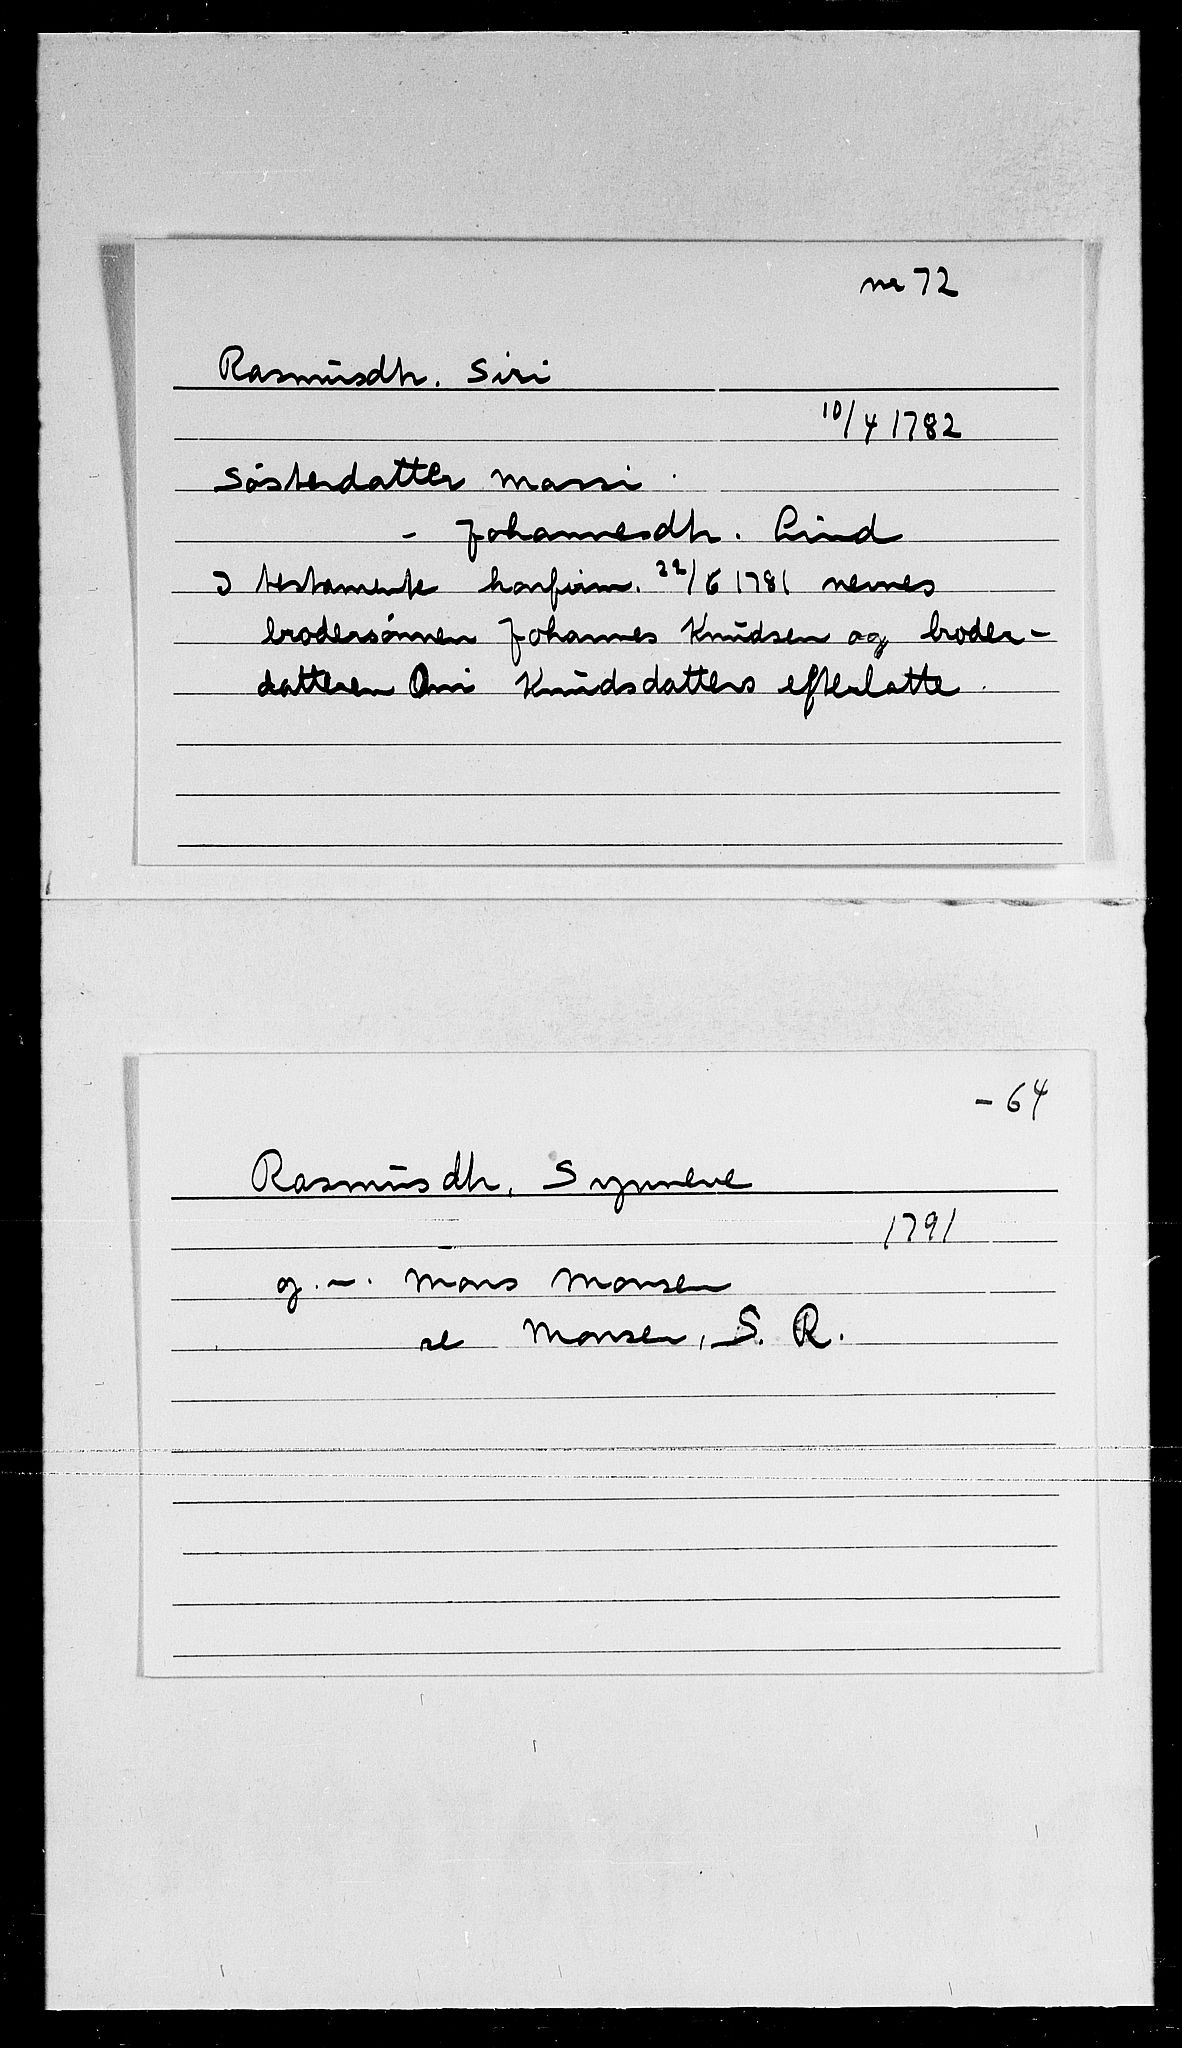 nr 72
Rasmusdtr. Siri
10/4 1782
Søsterdatter Marri
- Johannesdtr. Lind
I testamente konfirm. 22/6 1781 nevnes
brodersønnen Johannes Knudsen og broder-
datteren Knudsdatters efterlatte.
- 64
Rasmusdtr, Synneve
1791
g. m. Mons Monsen
se Monsen, S. R.